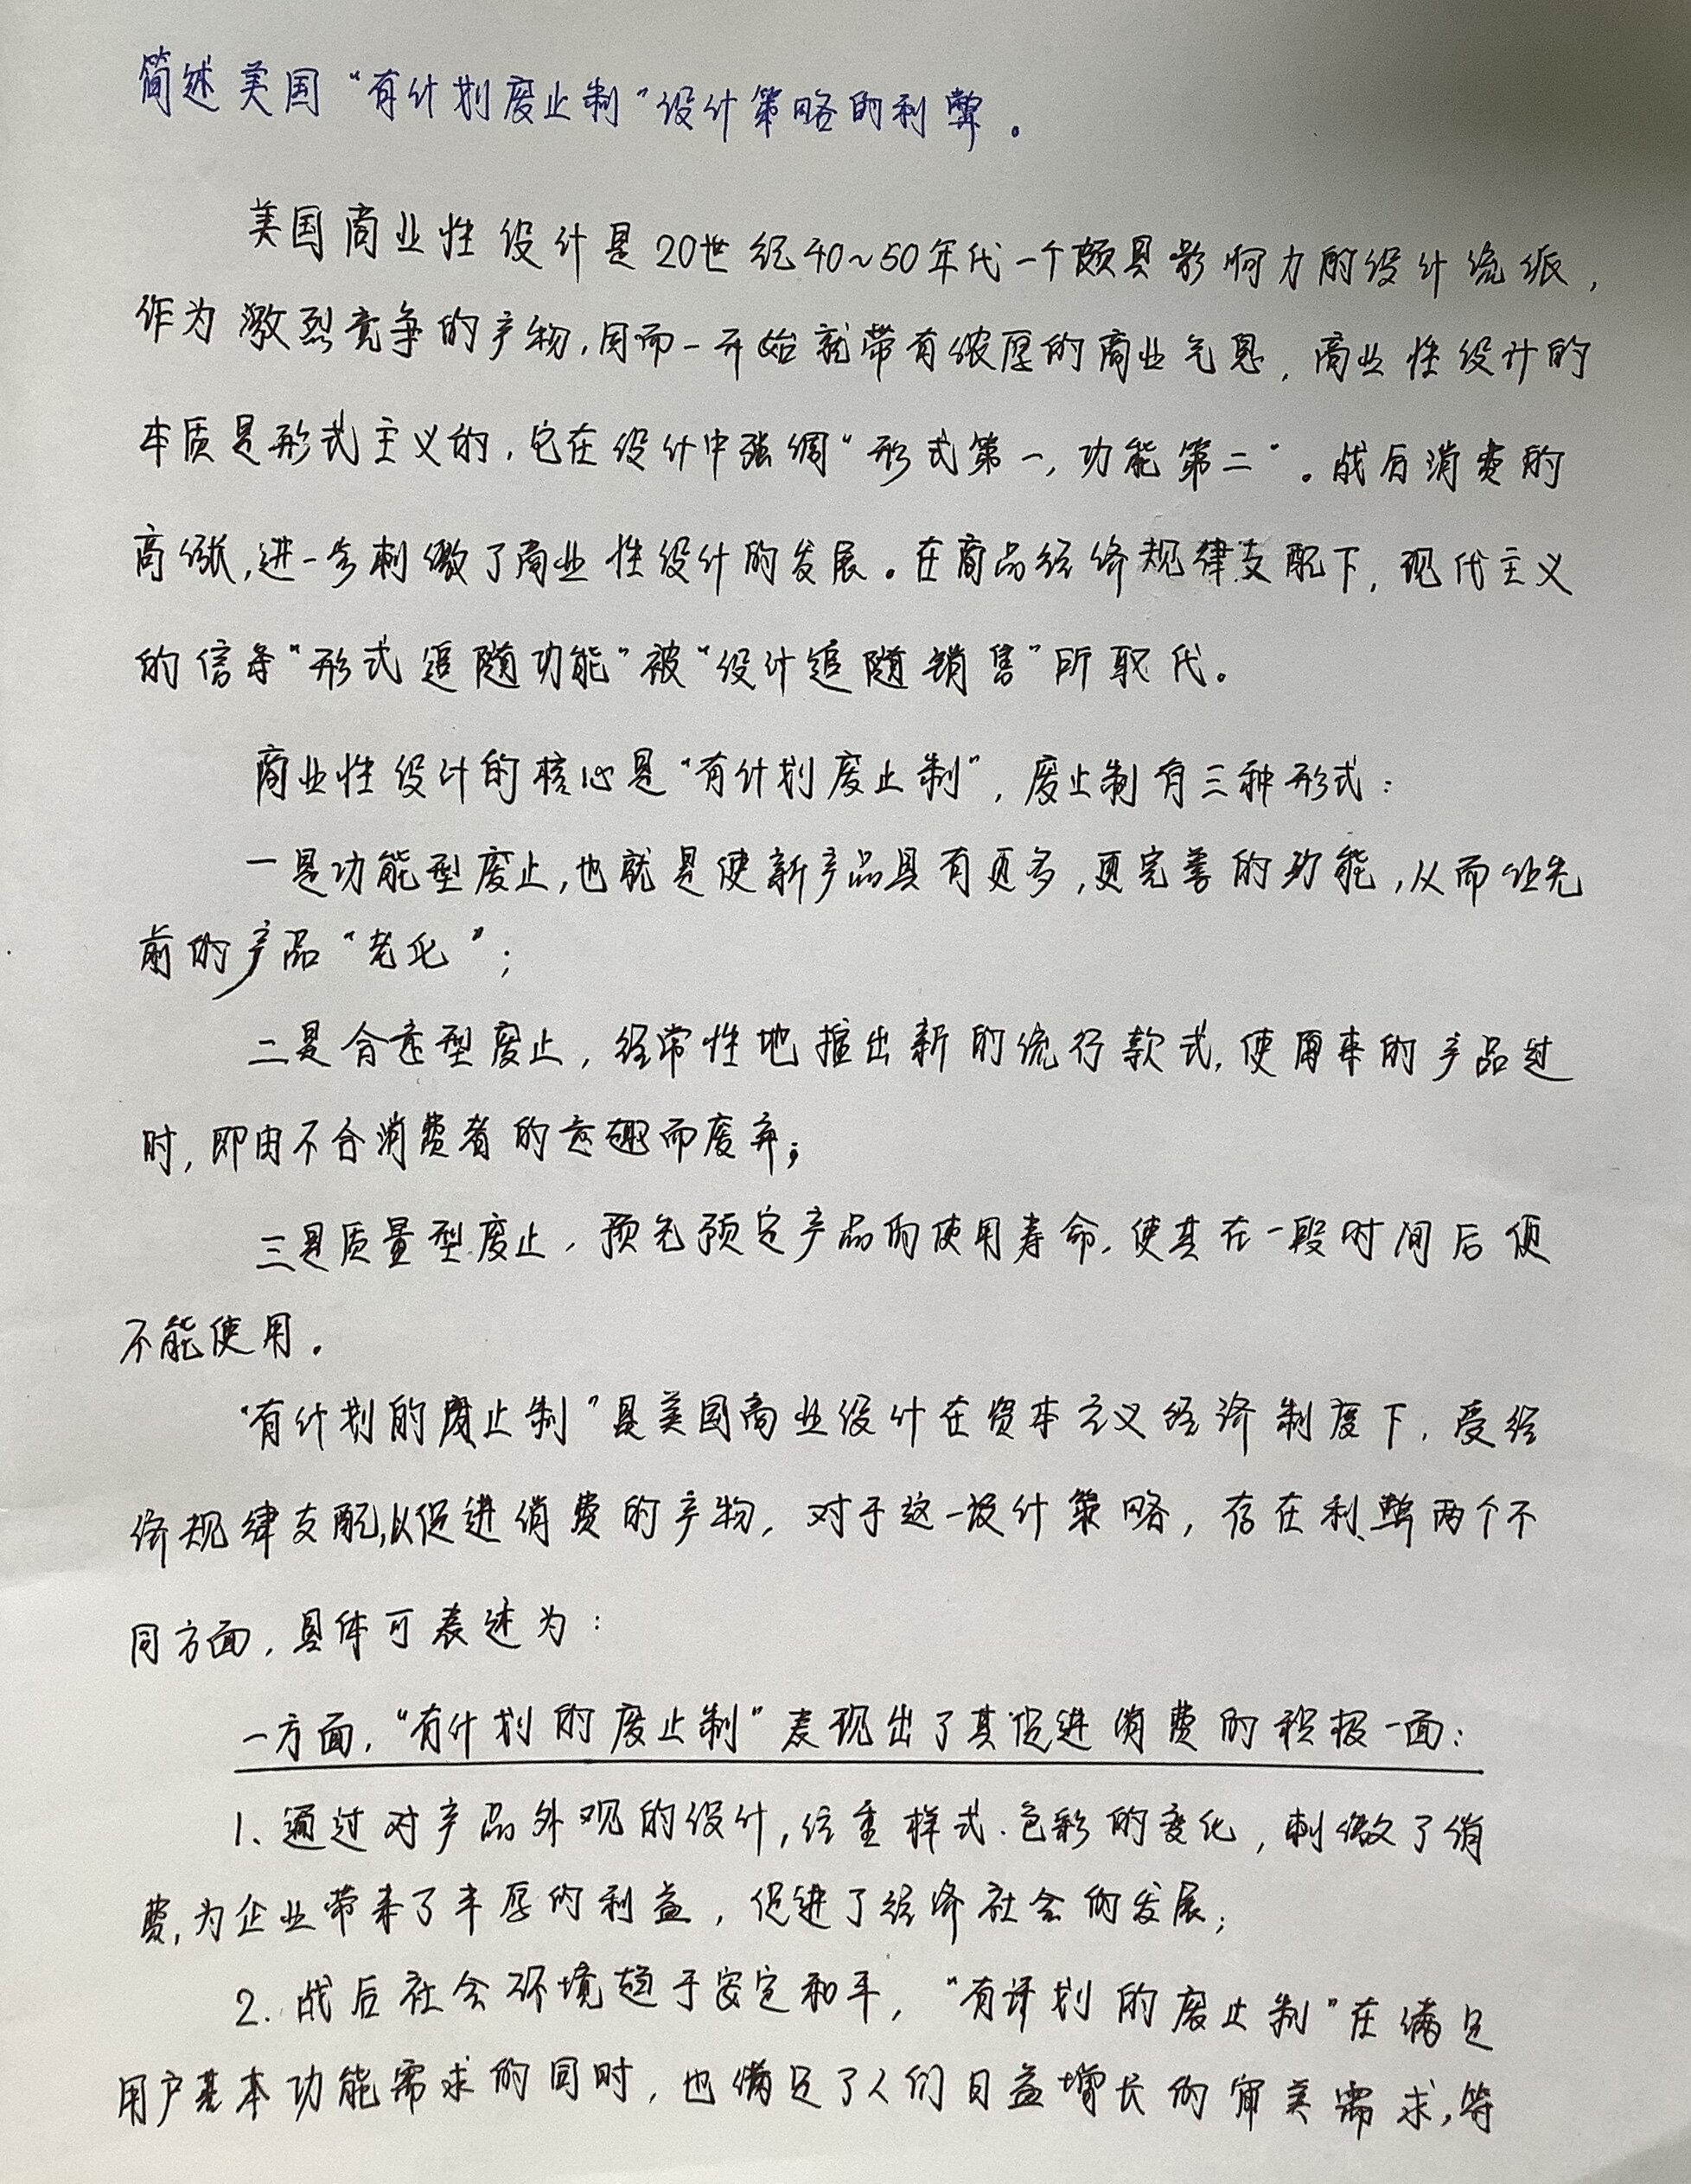 简述美国“有计划废止制”设计策略的利弊。
美国商业性设计是20世纪40~50年代一个颇具影响力的设计流派,
作为激烈竞争的产物,因而一开始就带有浓厚的商业气息,商业性设计的
本质是形式主义的,它在设计中强调“形式第一,功能第二”。战后消费的
高涨,进一步刺激了商业性设计的发展。在商品经济规律支配下,现代主义
的信条“形式追随功能”被“设计追随销售”所取代。
商业性设计的核心是“有计划废止制”,废止制有三种形式:
一是功能型废止,也就是使新产品具有更多,更完善的功能,从而让先
前的产品“老化”;
二是合意型废止,经常性地推出新的流行款式,使原来的产品过
时,即由不合消费者的意趣而废弃;
三是质量型废止,预先预定产品的使用寿命,使其在一段时间后便
不能使用。
“有计划的废止制”是美国商业设计在资本主义经济制度下,受经
济规律支配,以促进消费的产物,对于这一设计策略,存在利弊两个不
同方面,具体可表述为:
一方面,“有计划的废止制”表现出了其促进消费的积极一面:
1、通过对产品外观的设计,注重样式、色彩的变化,刺激了消
费,为企业带来了丰厚的利益,促进了经济社会的发展;
2.战后社会环境趋于安定和平,“有计划的废止制”在满足
用户基本功能需求的同时,也满足了人们日益增长的审美需求,等